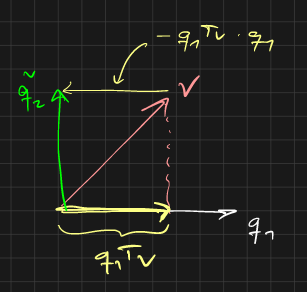 - q₁ᵀv · q₁
q̃₂
v
q₁
q₁ᵀv